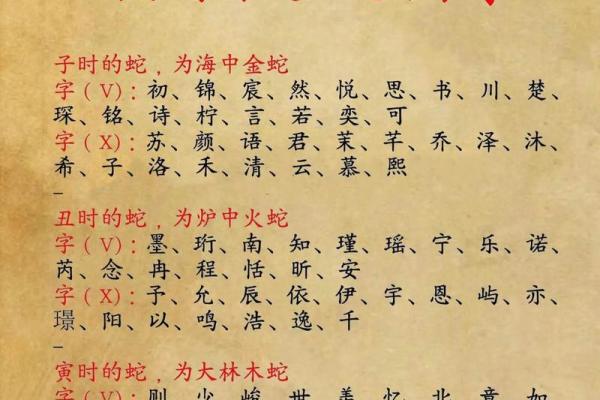 子时的蛇，为海中金蛇
字（V）：初、锦、宸、然、悦、思、书、川、楚、
琛、铭、诗、柠、言、若、奕、可
字（X）：苏、颜、语、君、茉、芊、乔、泽、沐、
希、子、洛、禾、清、云、慕、熙
–
丑时的蛇，为炉中火蛇
字（V）：墨、珩、南、知、瑾、瑶、宁、乐、诺、
芮、念、冉、程、恬、昕、安
字（X）：予、允、辰、依、伊、宇、恩、屿、亦、
璟、阳、以、鸣、浩、逸、千
–
寅时的蛇，为大林木蛇
字（V）：则、少、峻、世、善、忆、北、意、如